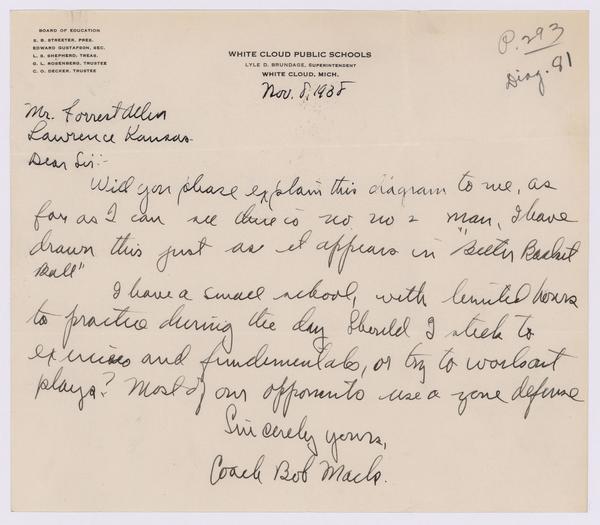 BOARD OF EDUCATION
S. B. STREETER, PRES.
EDWARD GUSTAFSON, SEC.
L. S. SHEPHERD, TREAS.
G. L. ROSENBERG, TRUSTEE
C. O. DECKER, TRUSTEE
WHITE CLOUD PUBLIC SCHOOLS
LYLE D. BRUNDAGE, SUPERINTENDENT
WHITE CLOUD, MICH.
P. 293
Diag. 81
Nov. 8, 1938
Mr. Forrest Allen
Lawrence Kansas.
Dear Sir:-
Will you please explain this diagram to me, as
far as I can see there is no no 2 man, I have
drawn this just as it appears in "Better Basket
Ball"
I have a small school, with limited hours
to practice during the day Should I stick to
exercises and fundamentals, or try to workout
plays? Most of our opponents use a zone defense
Sincerely yours,
Coach Bob Mack.